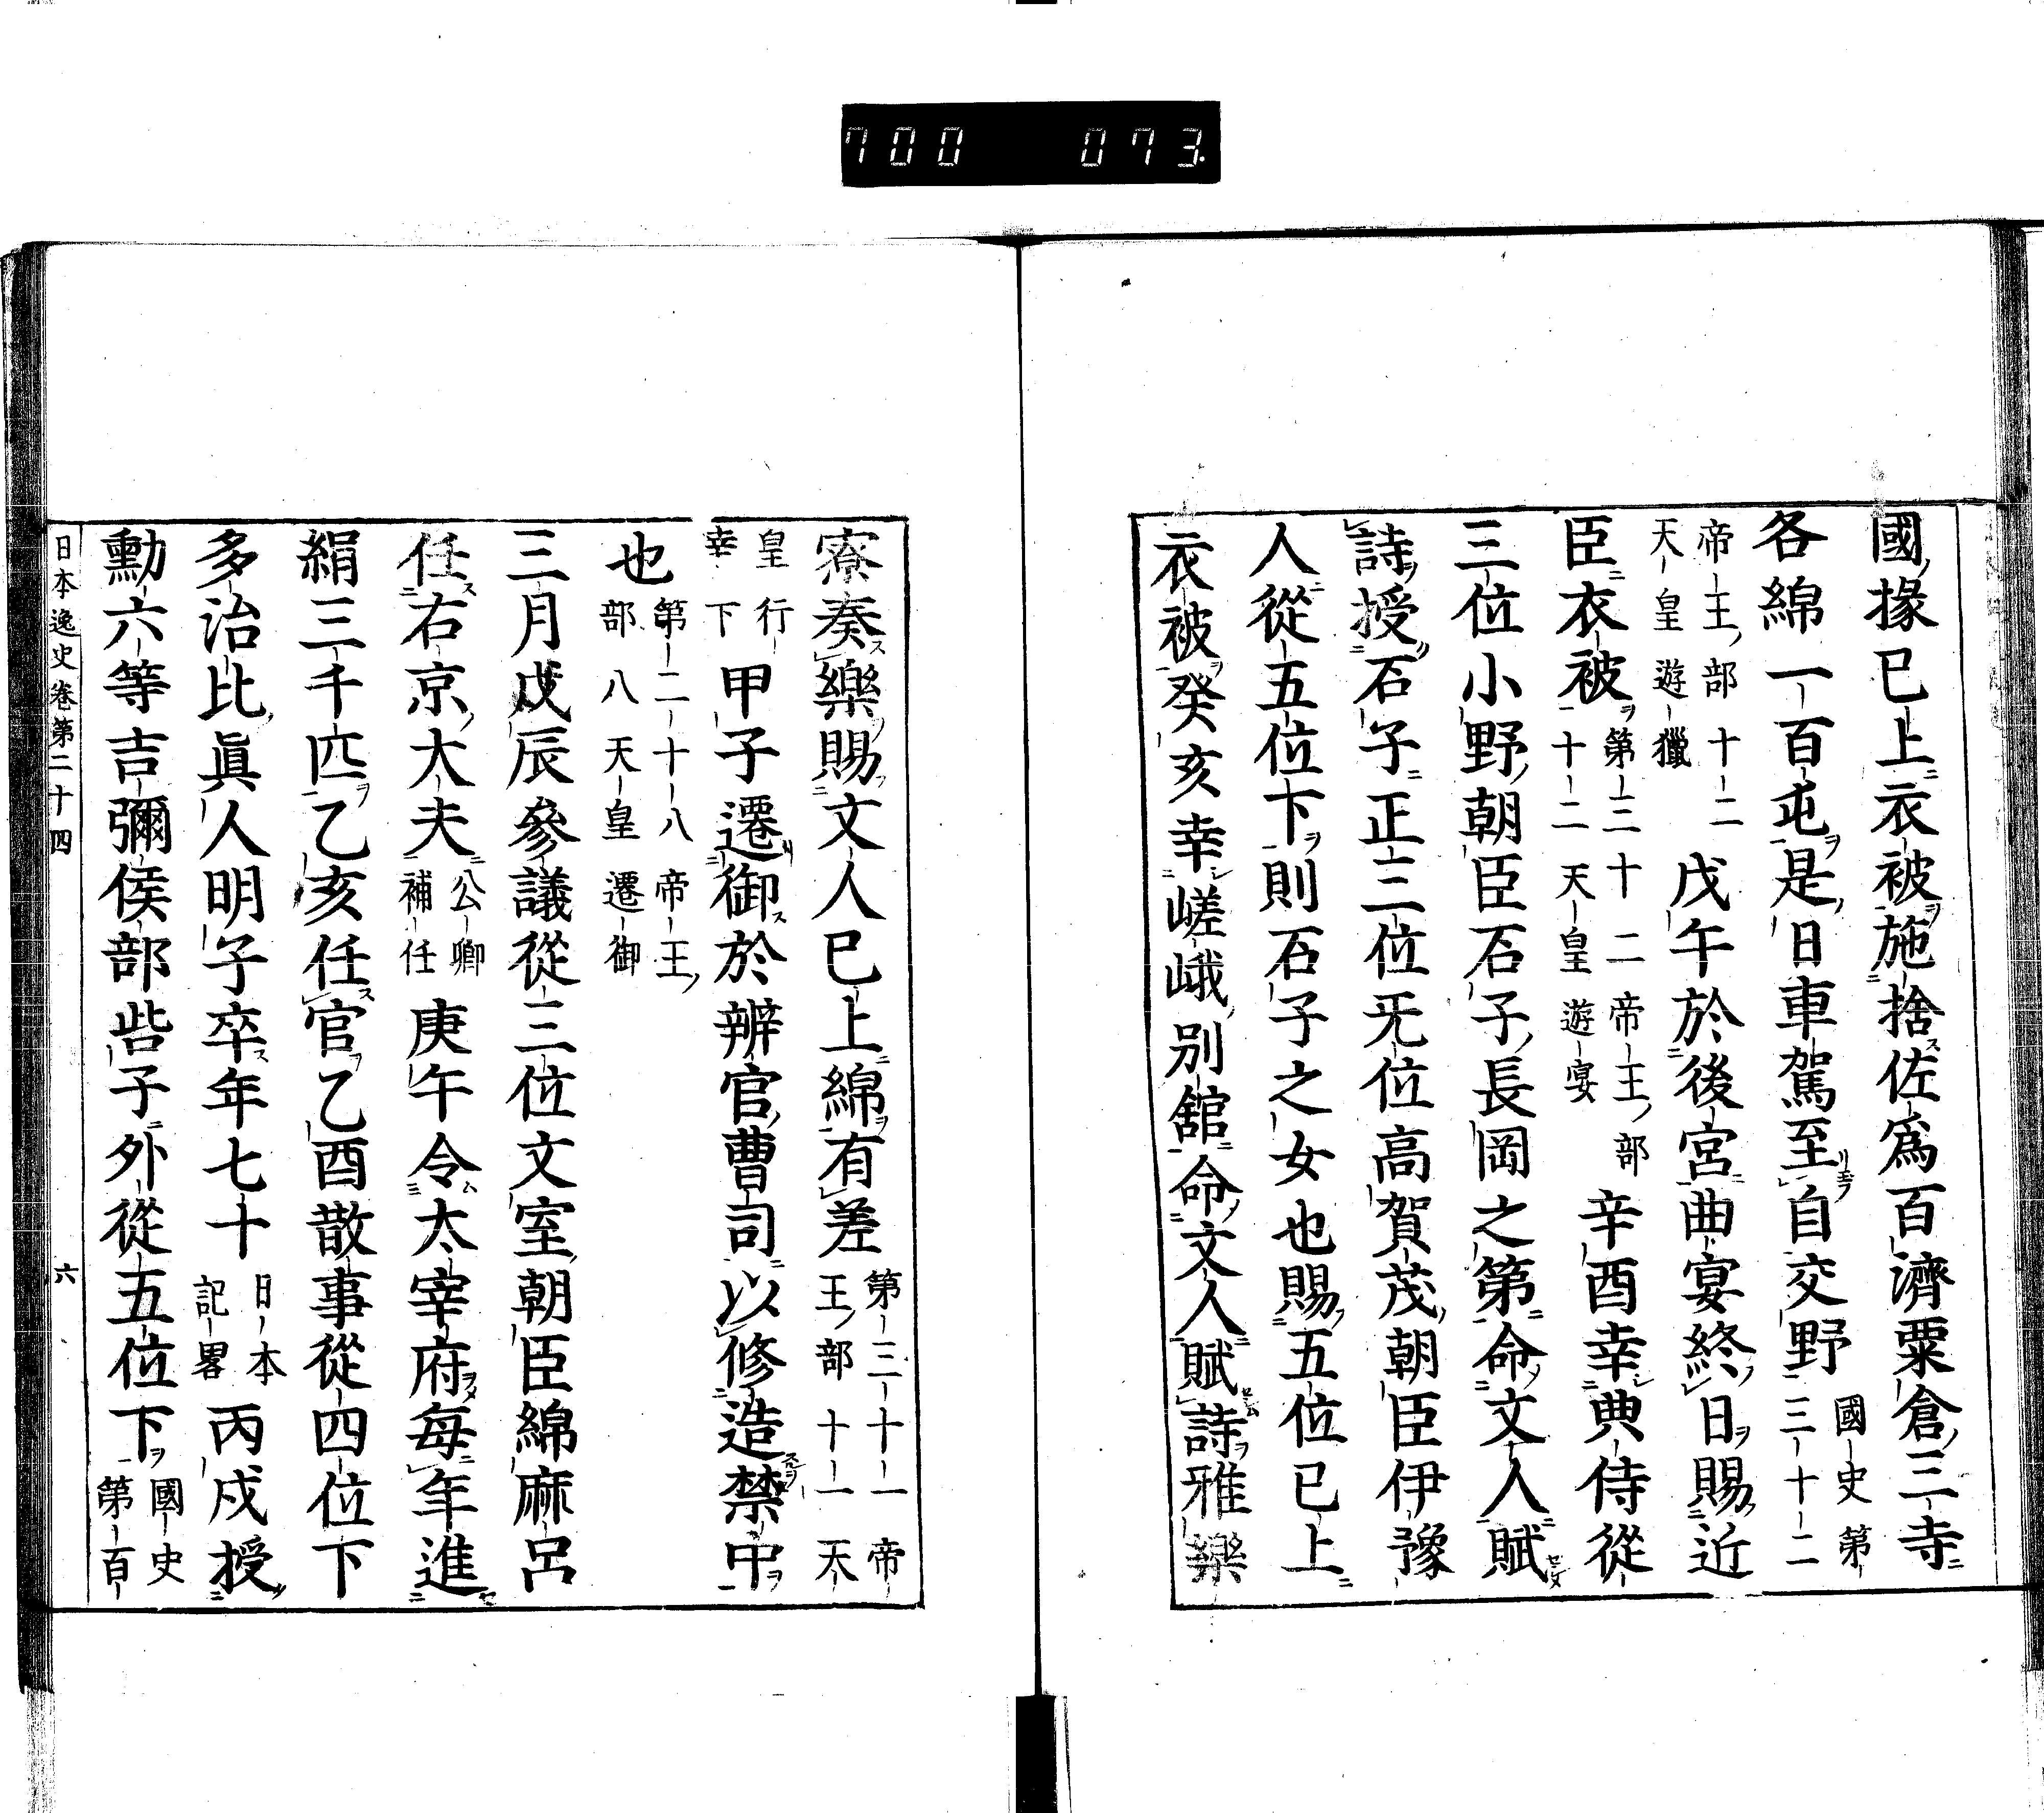 700 073
國掾已上衣被施捨佐爲百濟粟倉三寺
各綿一百屯是日車駕至自交野國史第三十二
帝王部十二天皇遊獵戊午於後宮曲宴終日賜近
臣衣被第三十二帝王部十二天皇遊宴辛酉幸典侍從
三位小野朝臣石子長岡之第命文人賦
詩授石子正三位无位高賀茂朝臣伊豫
人從五位下則石子之女也賜五位已上
衣被癸亥幸嵯峨別館命文人賦詩雅樂
寮奏樂賜文人已上綿有差第三十一帝王部十一天
皇行幸下甲子遷御於辨官曹司以修造禁中
也第二十八帝王部八天皇遷御
三月戊辰參議從三位文室朝臣綿麻呂
任右京大夫公卿補任庚午令太宰府每年進
絹三千匹乙亥任官乙酉散事從四位下
多治比眞人明子卒年七十日本記畧丙戌授
勳六等吉彌侯部呰子外從五位下國史第百
日本逸史卷第二十四 六